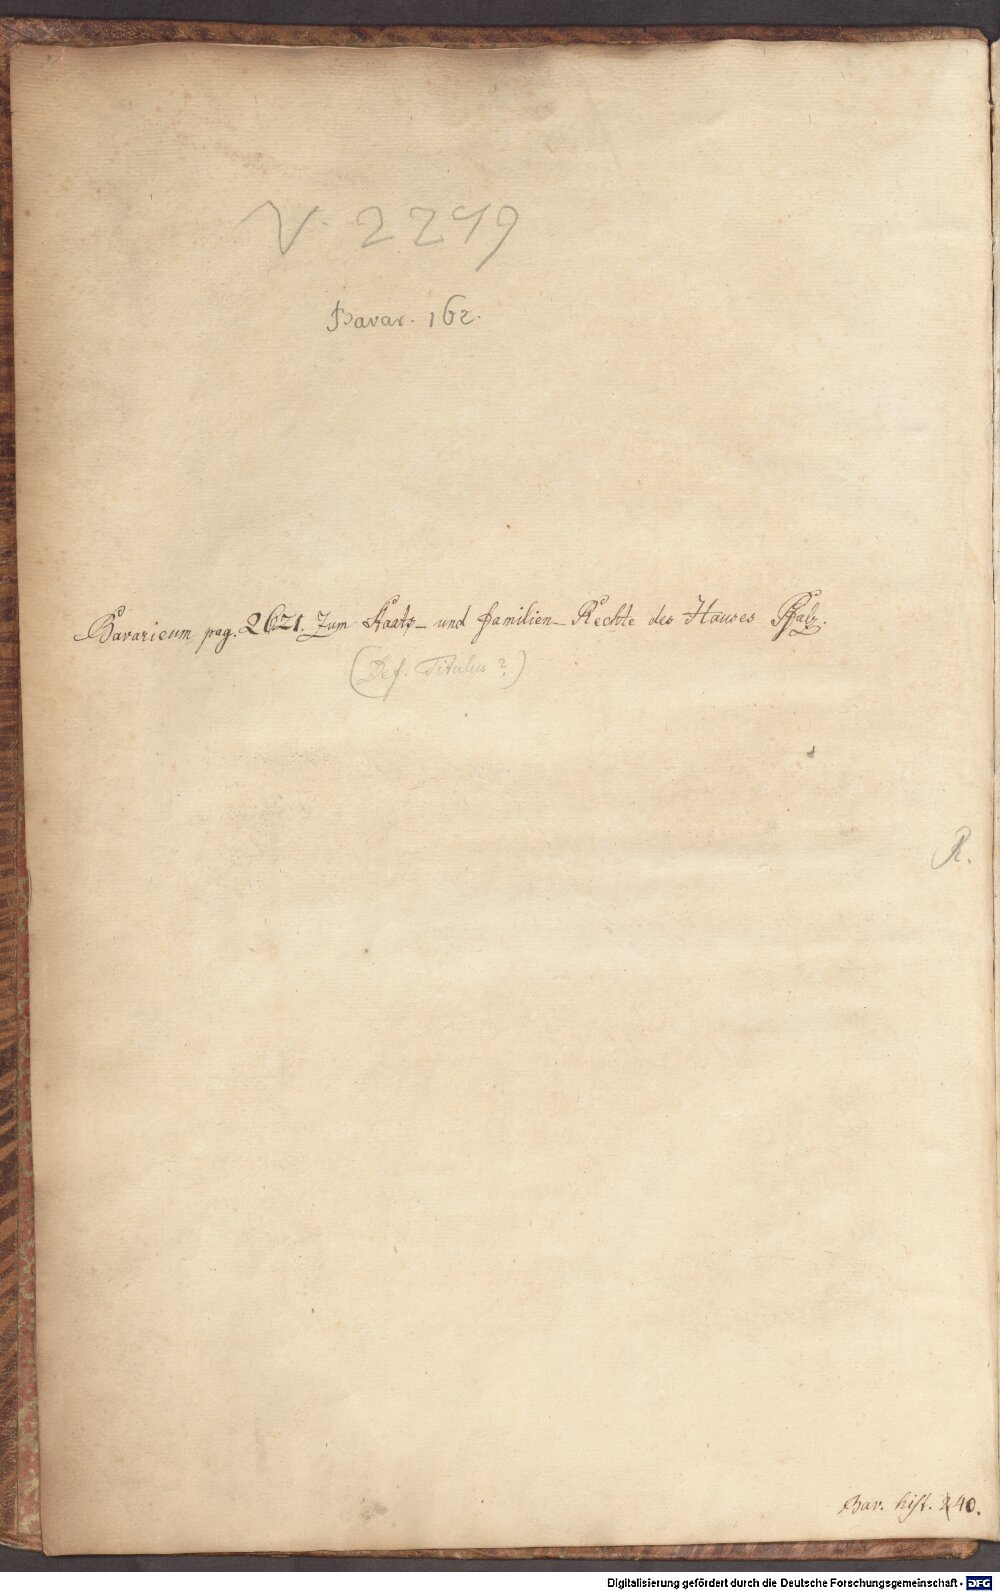 V. 2249
Bavar. 162.
Bavaricum pag. 2621. Zum Staats- und Familien-Rechte des Hauses Pfalz.
(Def. Titulus?)
R.
Bav. hist. 240.
Digitalisierung gefördert durch die Deutsche Forschungsgemeinschaft - DFG